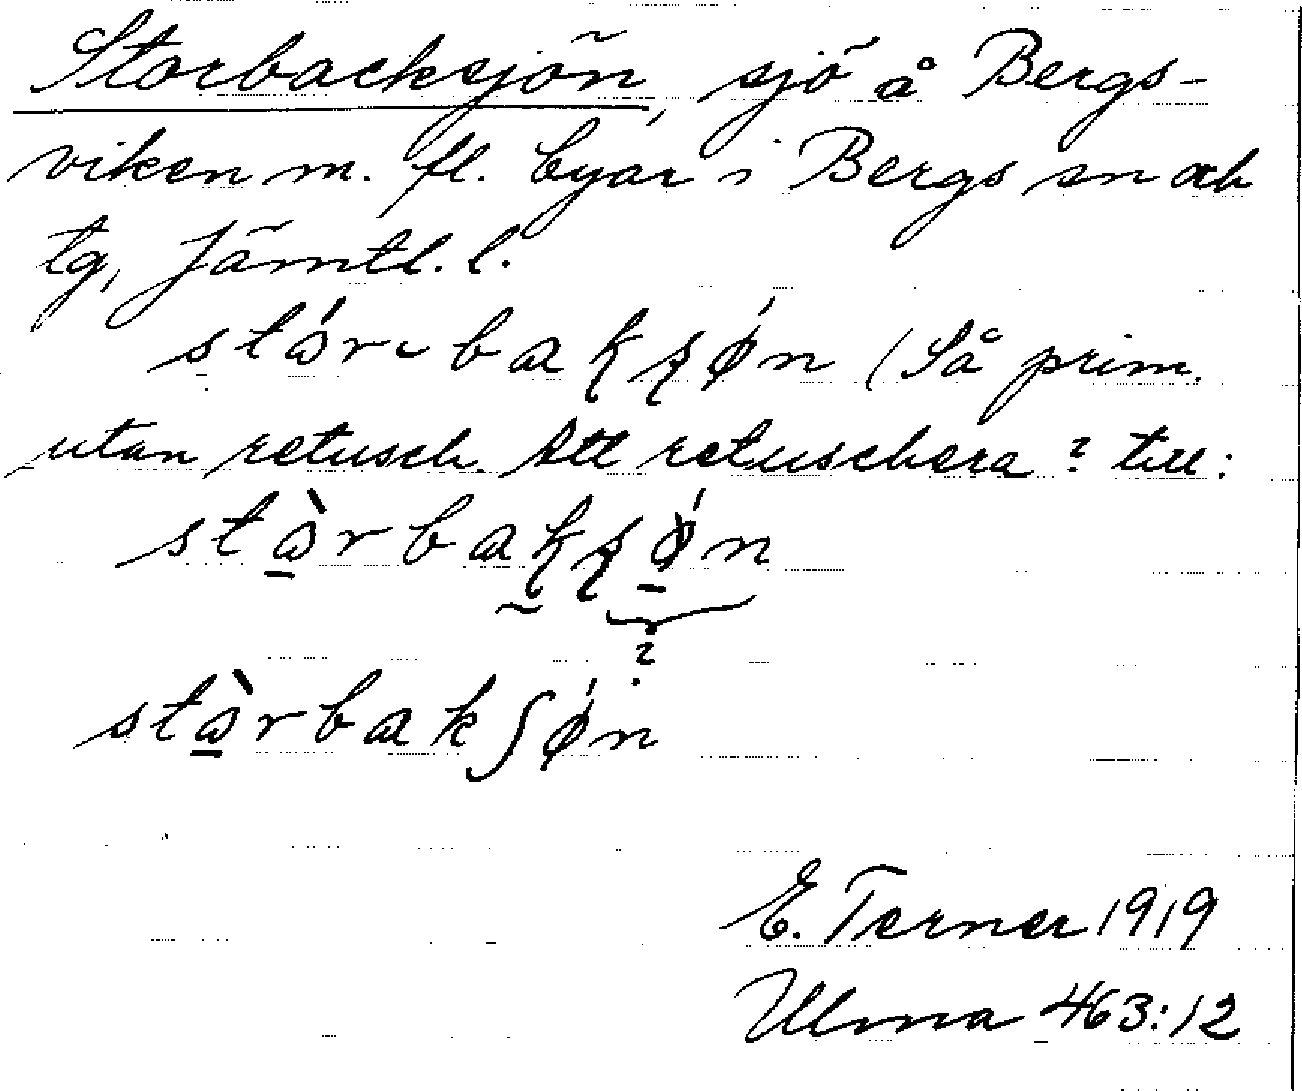 Storbacksjön, sjö å Bergs-
viken m. fl. byar i Bergs sn och
tg, Jämtl. l.
stár-bakʂǿn (Så prim.
utan retusch. Att retuschera? till:
stàrbakʂǿn
?
stàrbakʃǿn
E. Terner 1919
Ulma 463:12